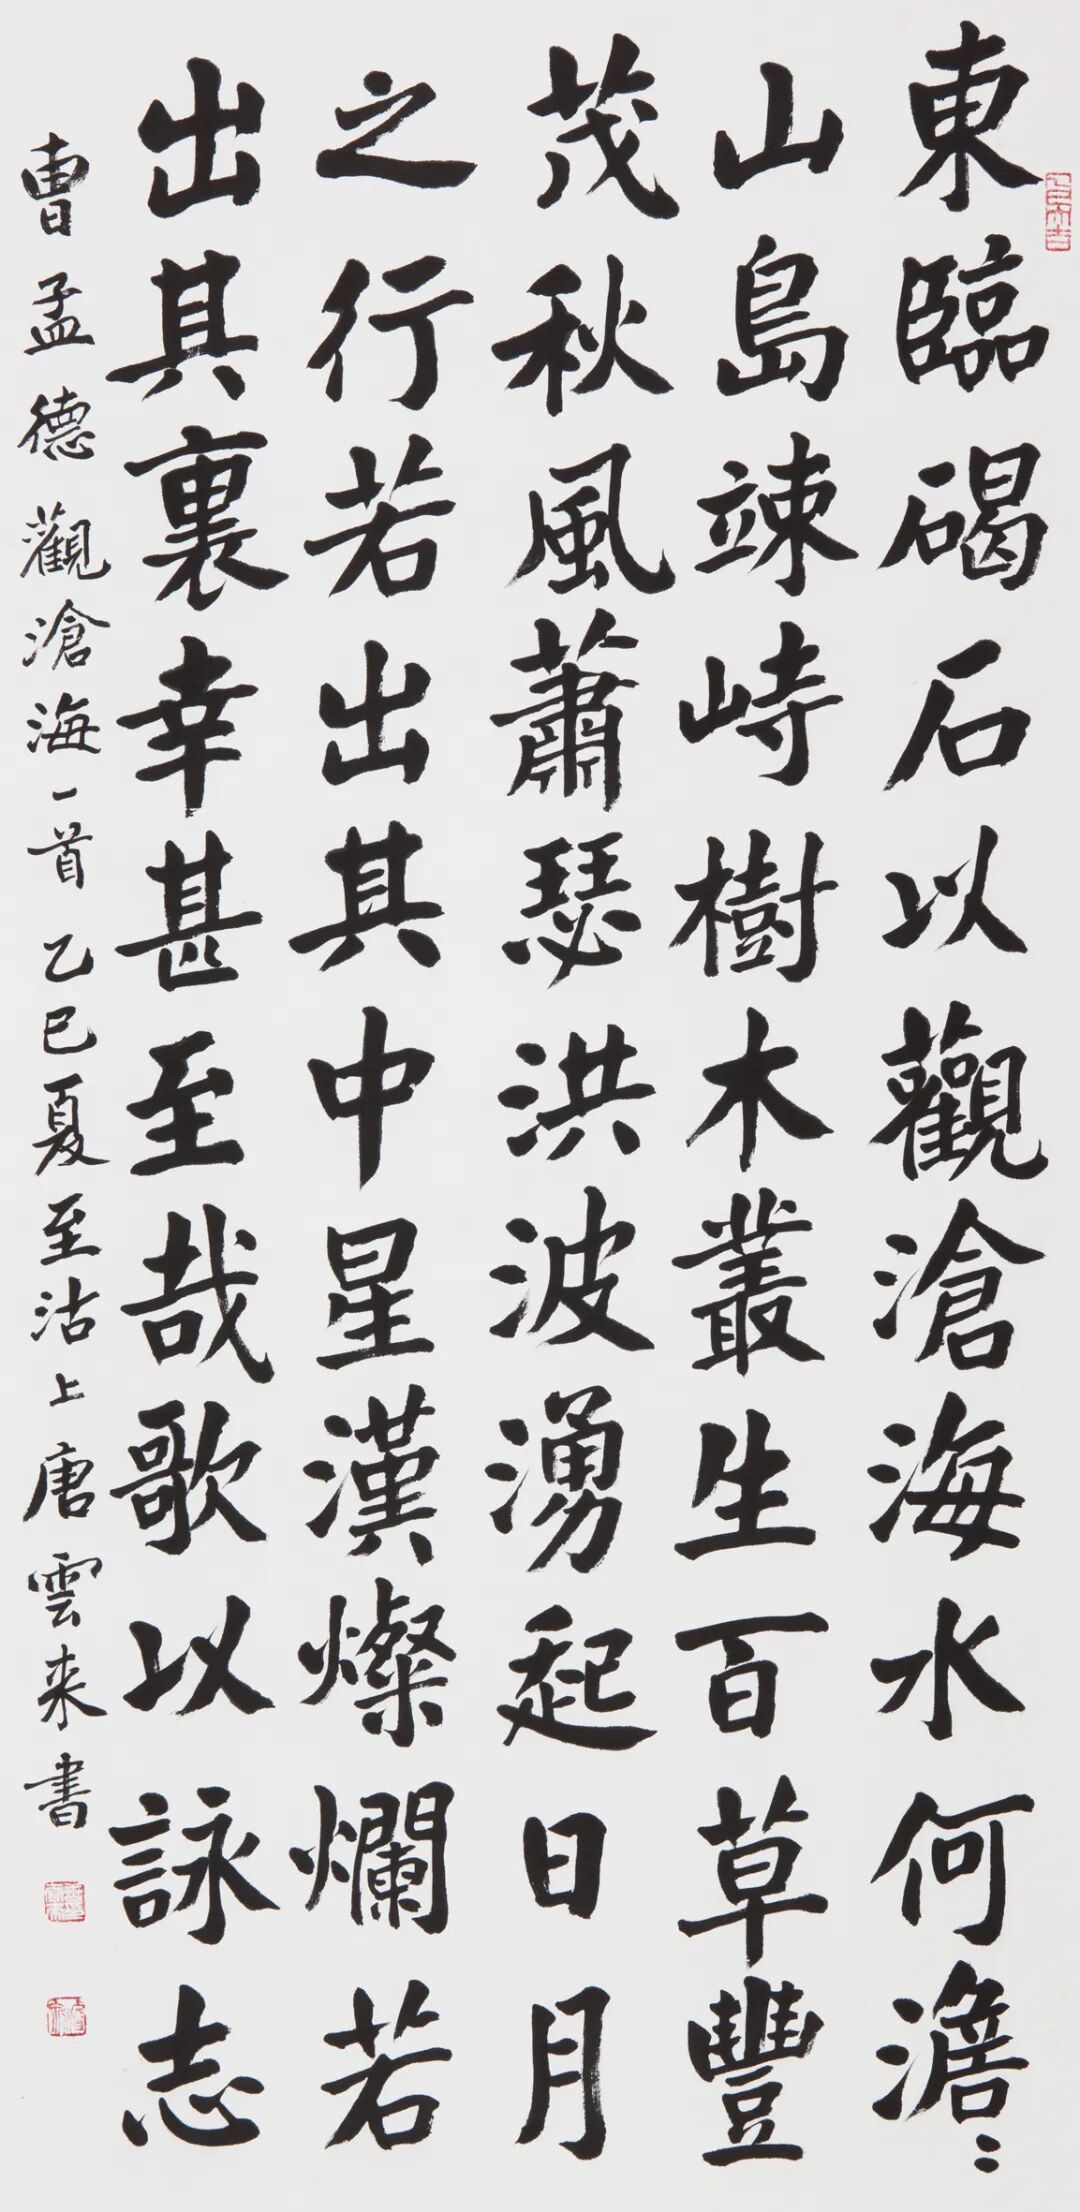 東臨碣石以觀滄海水何澹〻
山島竦峙樹木叢生百草豐
茂秋風蕭瑟洪波湧起日月
之行若出其中星漢燦爛若
出其裏幸甚至哉歌以詠志
曹孟德觀滄海一首乙巳夏至沽上唐雲来書